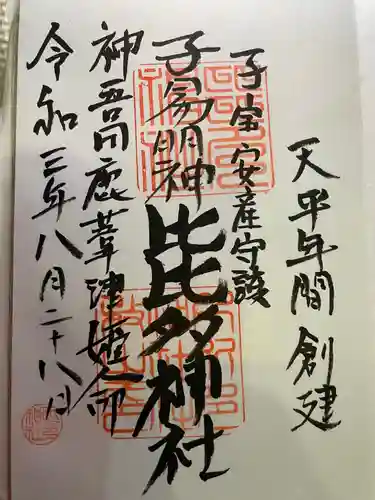 天平年間創建
子宝安産守護
子易明神比々多神社
神吾田鹿葦津姫命
令和三年八月二十八日